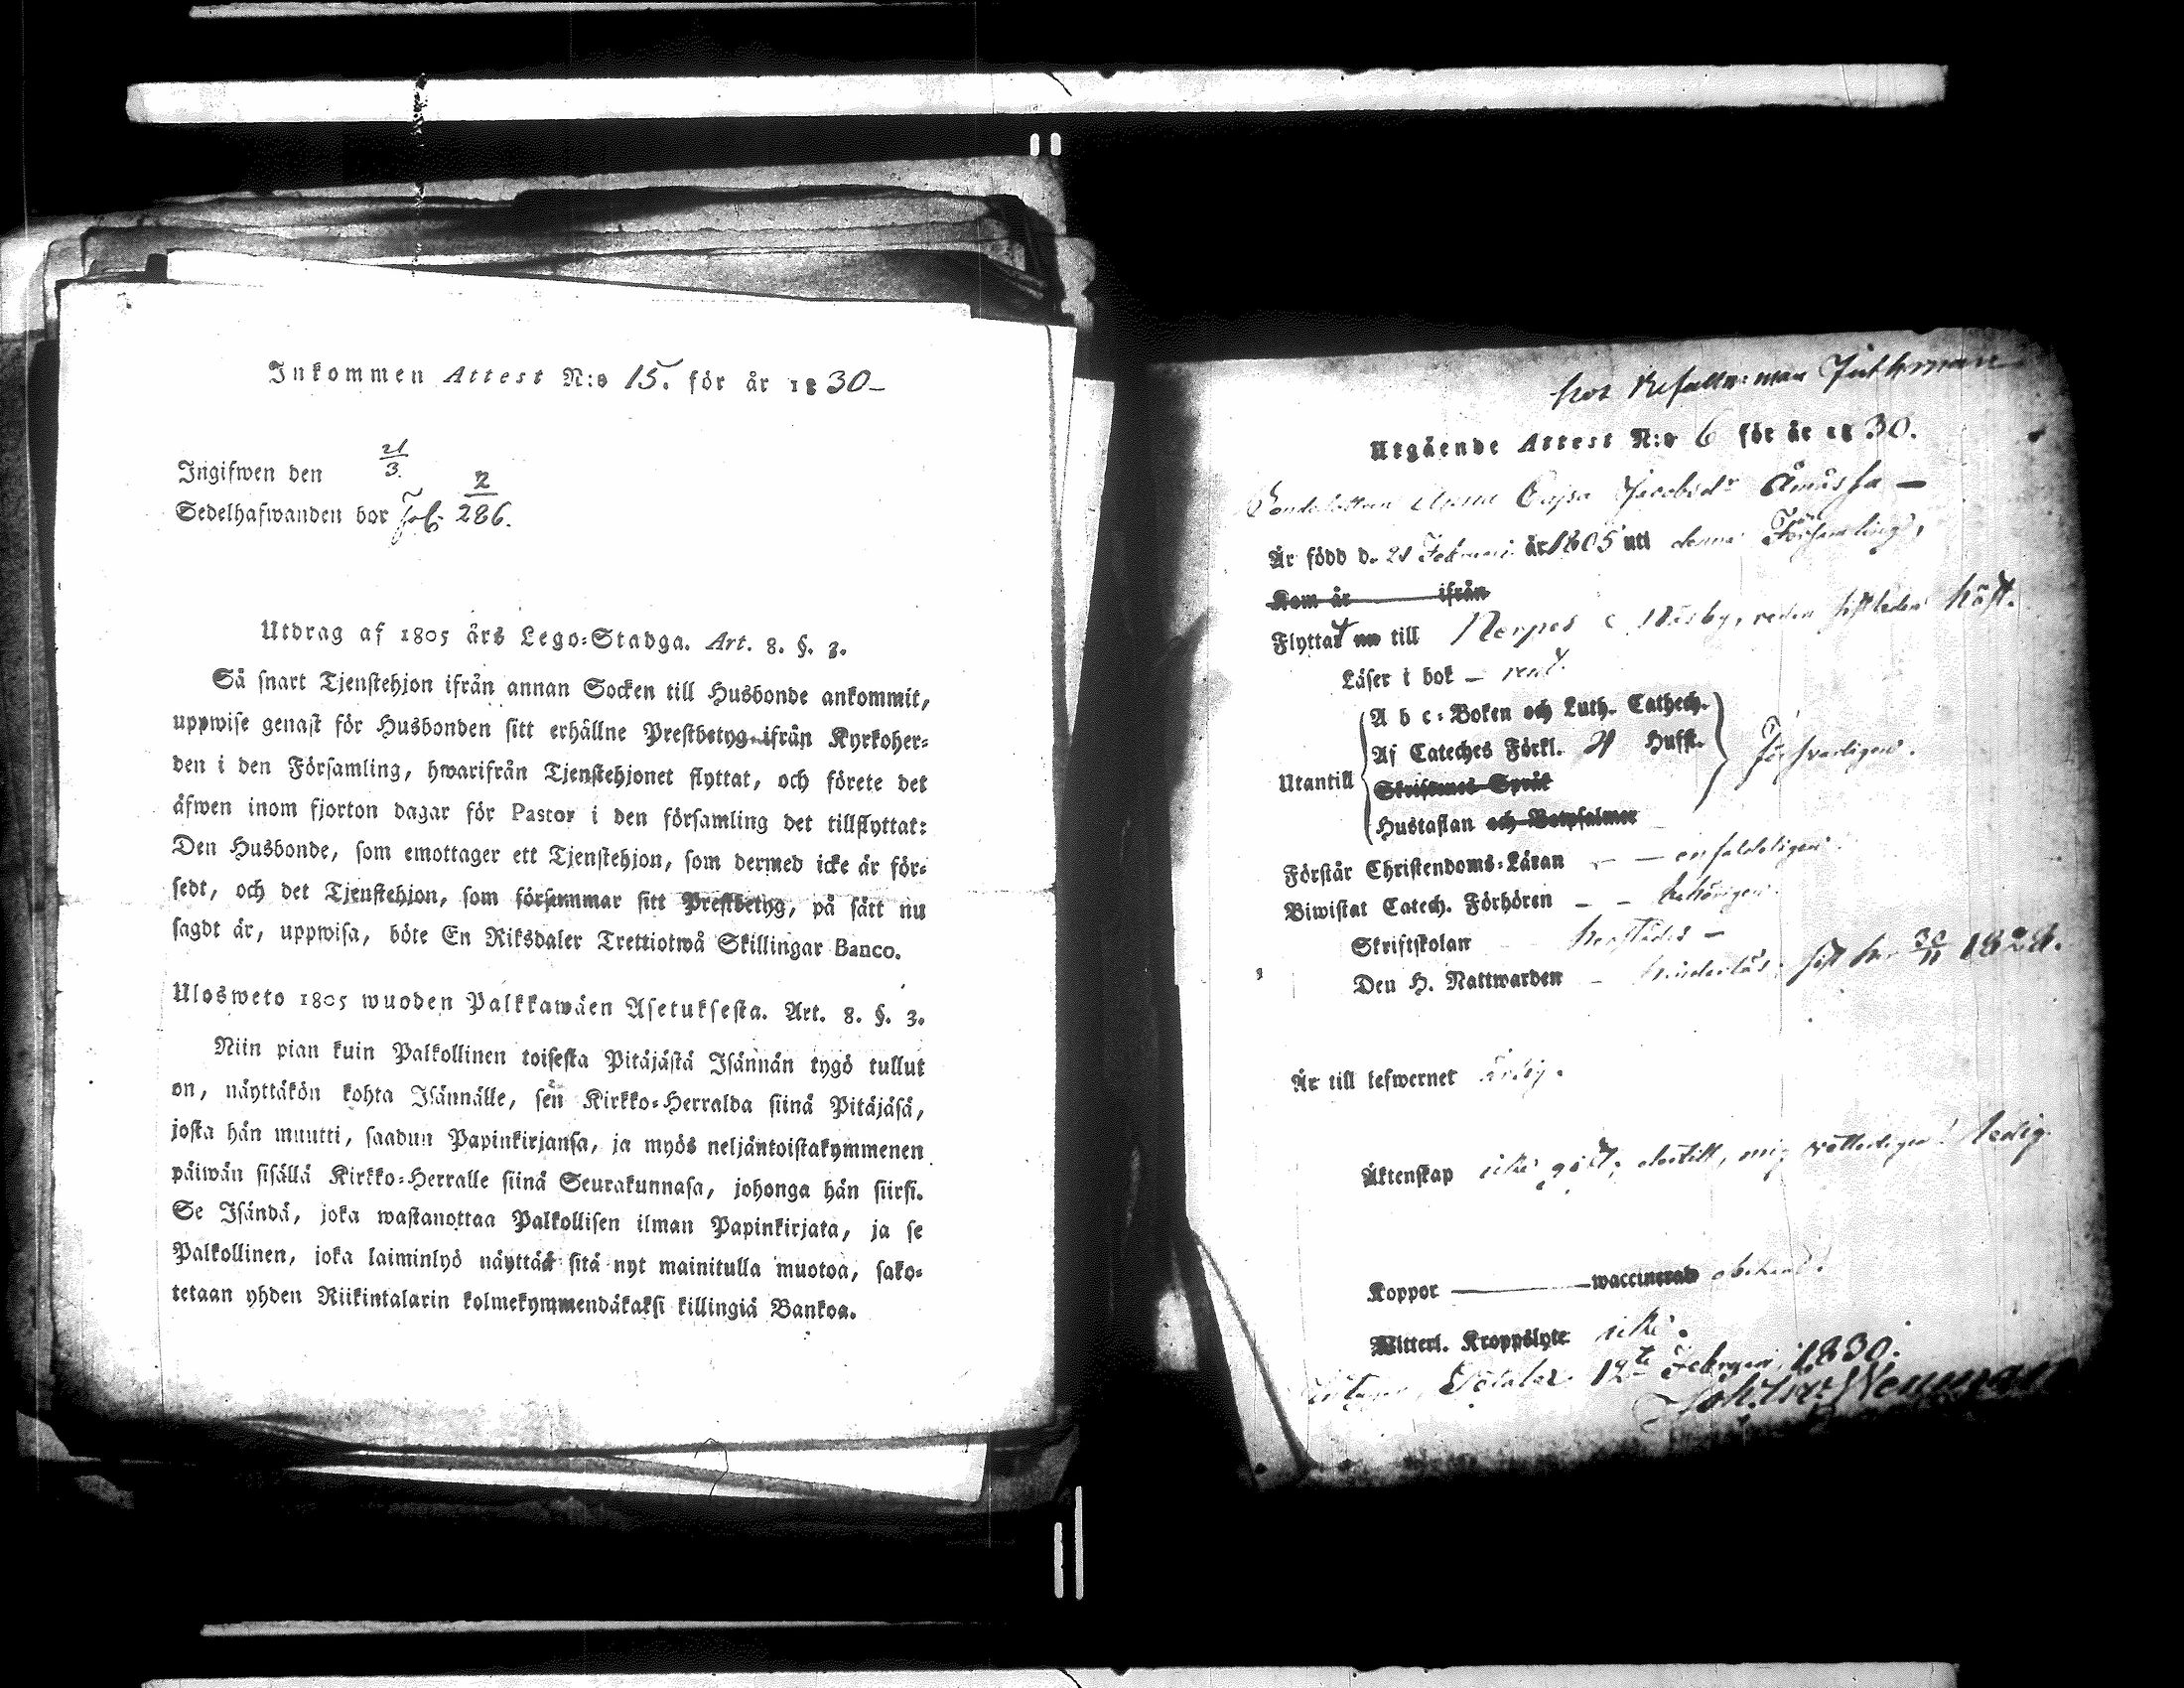 Inkommen Attest N:o 15. för år 1830-
Ingifwen den 21/3.
Sedelhafwanden bor fol. 2/286.
Utdrag af 1805 års Lego-Stadga. Art. 8. §. 3.
Så snart Tjenstehjon ifrån annan Socken till Husbonde ankommit,
uppwise genast för Husbonden sitt erhållne Prestbetyg ifrån Kyrkoher-
den i den Församling, hwarifrån Tjenstehjonet flyttat, och förete det
äfwen inom fjorton dagar för Pastor i den församling det tillflyttat:
Den Husbonde, som emottager ett Tjenstehjon, som dermed icke är för-
sedt, och det Tjenstehjon, som försummar sitt Prestbetyg, på sätt nu
sagdt är, uppwisa, böte En Riksdaler Trettiotwå Skillingar Banco.
Ulosweto 1805 wuoden Palkkawäen Asetuksesta. Art. 8. §. 3.
Niin pian kuin Palkollinen toisesta Pitäjästä Isännän tygö tullut
on, näyttäkön kohta Isännälle, sen Kirkko-Herralda siinä Pitäjäsä,
josta hän muutti, saadun Papinkirjansa, ja myös neljäntoistakymmenen
päiwän sisällä Kirkko-Herralle siinä Seurakunnasa, johonga hän siirsi.
Se Isändä, joka wastanottaa Palkollisen ilman Papinkirjata, ja se
Palkollinen, joka laiminlyö näyttää sitä nyt mainitulla muotoa, sako-
tetaan yhden Riikintalarin kolmekymmendäkaksi killingiä Bankoa.
hos Befalln:man Juthman
Utgående Attest N:o 6 för år 1830.
Bondedottren Anna Cajsa Jacobsdr
Är född d. 21 Februari år 1805 uti denna Församling,
Kom år ifrån
Flyttat nu till Nerpes sistleden höst.
Läser i bok - rent
Utantill
A b c-Boken och Luth. Cathech.
Af Cateches Förkl. Hufst.
Skriftenes Språk
Hustaflan och Botpsalmer
försvarligen.
Förstår Christendoms-Läran - - enfaldeligen.
Biwistat Catech. Förhören - - behörigen.
Skriftskolan
Den H. Nattwarden - sist här 30/11 1828.
Är till lefwernet ärlig.
Äktenskap icke gådt, ledig.
Koppor waccinerad obekant.
Witterl. Kroppslyte icke.
12te Februari 1830.